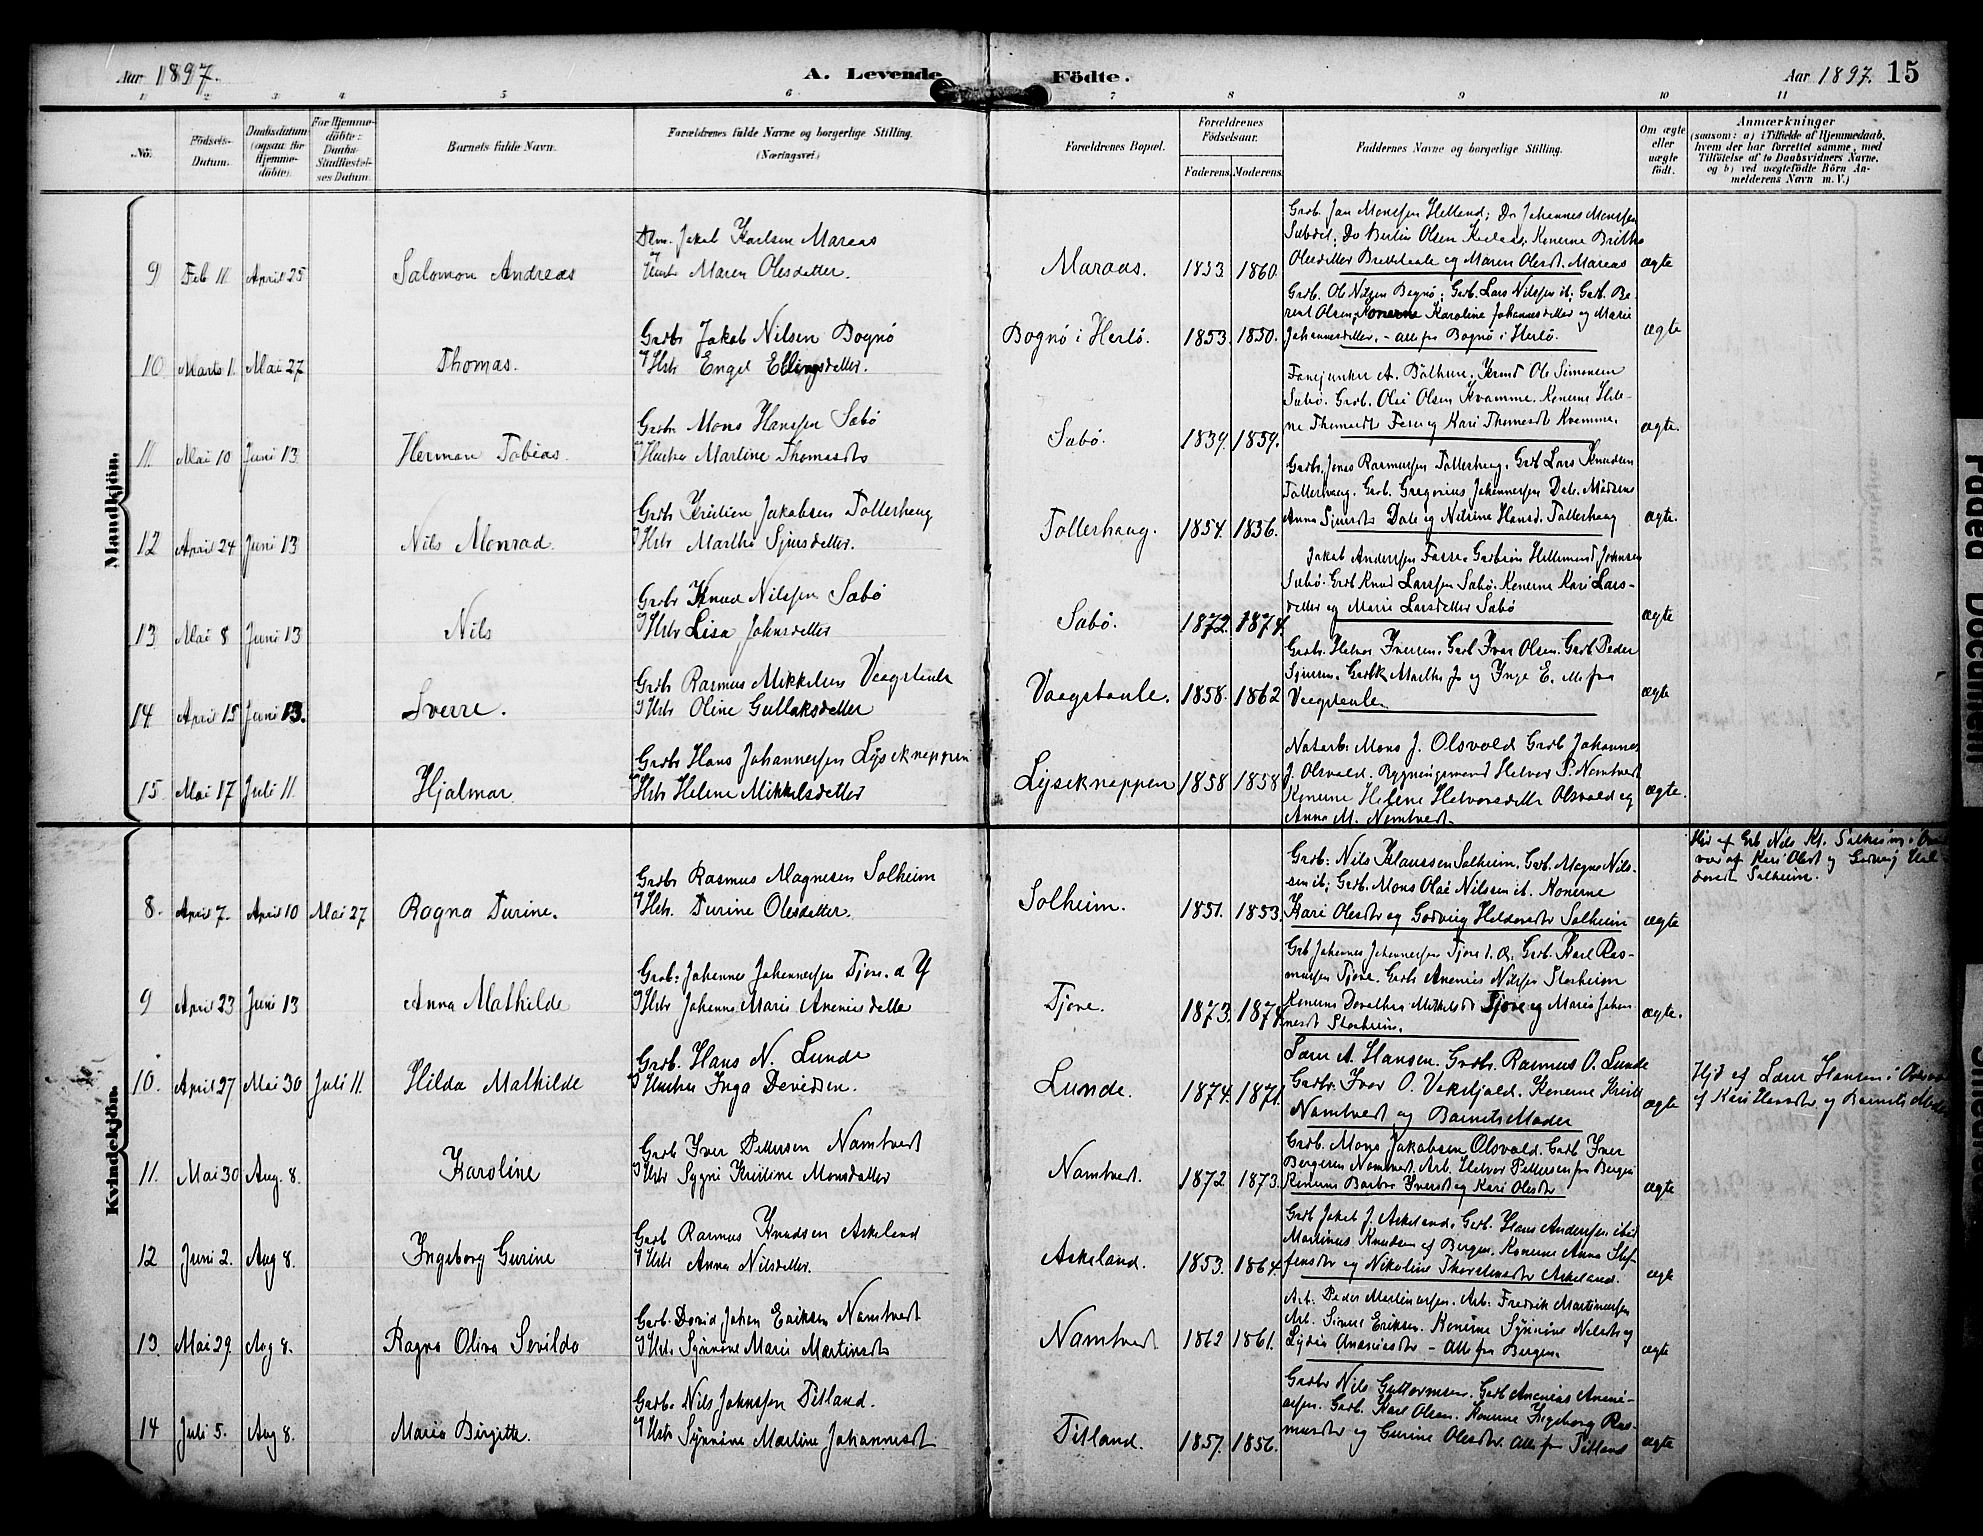 Aar 1897.
A. Levende Födte.
Aar 1897. 15
1 2 3 4 5 6 7 8 9 10 11
No.
Födsels-
Datum.
Daabsdatum
(ogsaa for
Hjemme-
döbte).
For Hjemme-
döbte:
Daabs-
Stadfæstel-
ses Datum.
Barnets fulde Navn.
Forældrenes fulde Navne og borgerlige Stilling.
(Næringsvei)
Forældrenes Bopæl.
Forældrenes
Födselsaar.
Faderens. Moderens.
Faddernes Navne og borgerlige Stilling.
Om ægte
eller
uægte
födt.
Anmærkninger
(saasom: a) i Tilfælde af Hjemmedaab,
hvem der har forrettet samme, med
Tilföielse af to Daabsvidners Navne,
og b) ved uægtefödte Börn An-
melderens Navn m. V.)
Mandkjön.
9 Feb 11 April 25 Salomon Andreas
Jakob Karlsen Maraas
Maren Olesdatter.
Maraas. 1853 1860
Grdb. Jan Monssen Helland; Do Johannes Monssen
Olsen Konerne Britha
Olesdatter og Maren Olesdt. Maraas
ægte
10 Marts 1. Mai 27 Thomas.
Grdbr Jakob Nilsen Bognö
Hstr Engel Ellingsdatter.
Bognö i Herlö. 1853. 1850.
Grdb. Ole Nilsen Bognö; Grdb. Lars Nilssen it; Grdb. Be-
rent Olsen, Konerne Karoline Johannesdatter og Marie
Johannesdatter. - alle fra Bognö i Herlö.
ægte
11. Mai 10 Juni 13 Herman Tobias.
Grdbr Mons Hanssen Sæbö
Hustru Martine Thomasdtr
Sæbö. 1839. 1859.
Ole Simonsen
Sæbö. Grdb. Olai Olsen Kvamme. Konerne Hele-
ne Thomasdt og Kari Thomasdt Kvamme.
ægte.
12 April 24 Juni 13 Nils Monrad.
Grdbr Kristian Jakobsen Tollerhaug
Hstr Martha Sjursdatter.
Tollerhaug. 1854. 1856.
Grdbr. Jens Rasmussen Tollerhaug. Grdb Lars Knudsen
Tollerhaug. Grdb. Gregorius Johannessen Dale.
Anna Sjursdtr Dale og Nilsine Hansd. Tollerhaug
ægte.
13 Mai 8 Juni 13 Nils
Grdbr Knud Nilssen Sæbö
Hstr Lisa Johnsdatter
Sæbö. 1872. 1874.
Jakob Anderssen
Sæbö. Grdb Knud Larssen Sæbö. Konerne Kari Lars-
datter og Marie Larsdatter Sæbö
ægte
14 April 15 Juni 13. Sverre.
Grdbr Rasmus Mikkelsen Vaagstaule
Hstr Oline Gullaksdatter
Vaagstaule. 1858. 1862
Grdbr. Helvor Iversen. Grdb Ivar Olsen. Grdb Peder
Sjursen. Martha J og Inga E. alle fra
Vaagstaule
ægte
15. Mai 17 Juli 11. Hjalmar
Grdbr Hans Johannessen Lyseknappen
Hstr Helene Mikkelsdatter
Lyseknappen 1858 1858
Mons J. Olsvold Grdb Johannes
J. Olsvold. Bygningsmand Helvor P. Namtvedt
Konerne Helene Helvorsdatter Olsvold og
Anna M. Namtvedt.
ægte.
Kvindekjön.
8. April 7. April 10 Mai 27 Ragna Turine.
Grdbr Rasmus Magnesen Solheim
Hstr. Turine Olesdatter.
Solheim. 1851. 1853.
Grdb: Nils Klaussen Solheim. Grdb. Magne Nils-
sen it; Grdb. Mons Olai Nilssen it. Konerne
Kari Olesdtr og Gudvig Heldorsdtr Solheim
ægte
Hjd af Grb Nils Kl. Solheim
af Kari Olesdt og
Solheim.
9 April 23 Juni 13 Anna Mathilde
Grdb. Johannes Johannessen Tjore. d Y
Hstr Johanna Marie Ananiasdatte
Tjore. 1873. 1874.
Grb Johannes Johannessen Tjore d. Æ. Grdb. Karl Ras-
mussen Tjore. Grdb Ananias Nilssen Storheim
Konerne Dorathea Mikkelsdt Tjore og Marie Johan-
nesdt Storheim.
ægte.
10. April 27 Mai 30 Juli 11. Hilda Mathilde
Grdb. Hans N. Lunde
Hustru Inga Davidsen.
Lunde. 1874. 1871.
Lærer A. Hansen. Grdbr. Rasmus O. Lunde
Grdbr. Ivar O. Konerne
Namtvedt og Barnets Moder
ægte
Hjd af Lærer Hansen i
af Kari og Barnets Moder
11. Mai 30 Aug. 8. Karoline
Grdb Iver Pettersen Namtvedt
Hstr Sygni Kristine Monsdatter
Namtvedt. 1872 1873.
Grdb. Mons Jakobsen Olsvold. Grdb Iver
Bergesen Namtvedt. Arb. Helvor Pettersen fra Bergen
Konerne Barbro Iversdt og Kari Olesdtr
ægte
12 Juni 2. Aug 8. Ingeborg Gurine
Grdb Rasmus Knudsen Askeland
Hstr Anna Nilsdatter.
Askeland. 1853. 1864.
Grdb Jakob J. Askeland. Grdb. Hans Anderssen ibid
Martinus Knudsen af Bergen. Konerne Anna Stef-
fensdtr og Nikoline Thorstensdtr Askeland.
ægte
13. Mai 29. Aug 8. Ragna Oliva Sevilda
Grdb. David Johan Eriksen Namtvedt
Hstr Synnöve Marie Martinsdtr
Namtvedt 1862 1861.
Arb. Peder Martinussen. Arb. Fredrik Martinussen
Arb. Simon Eriksen. Konerne Synnöve Nilsdtr og
Lydia Ananiasdtr - Alle fra Bergen.
ægte
14 Juli 5. Aug 8. Maria Birgitte.
Grdb. Nils Johnssen Titland.
Hstr Synnöve Martine Johannesdt
Titland. 1857. 1856.
Grdbr Nils Guttormsen. Grdb Ananias Anani-
assen. Grdb. Karl Olsen. Konerne Ingeborg Ras-
musdtr og Gurine Olesdtr. Alle fra Titland
ægte
Faded Document